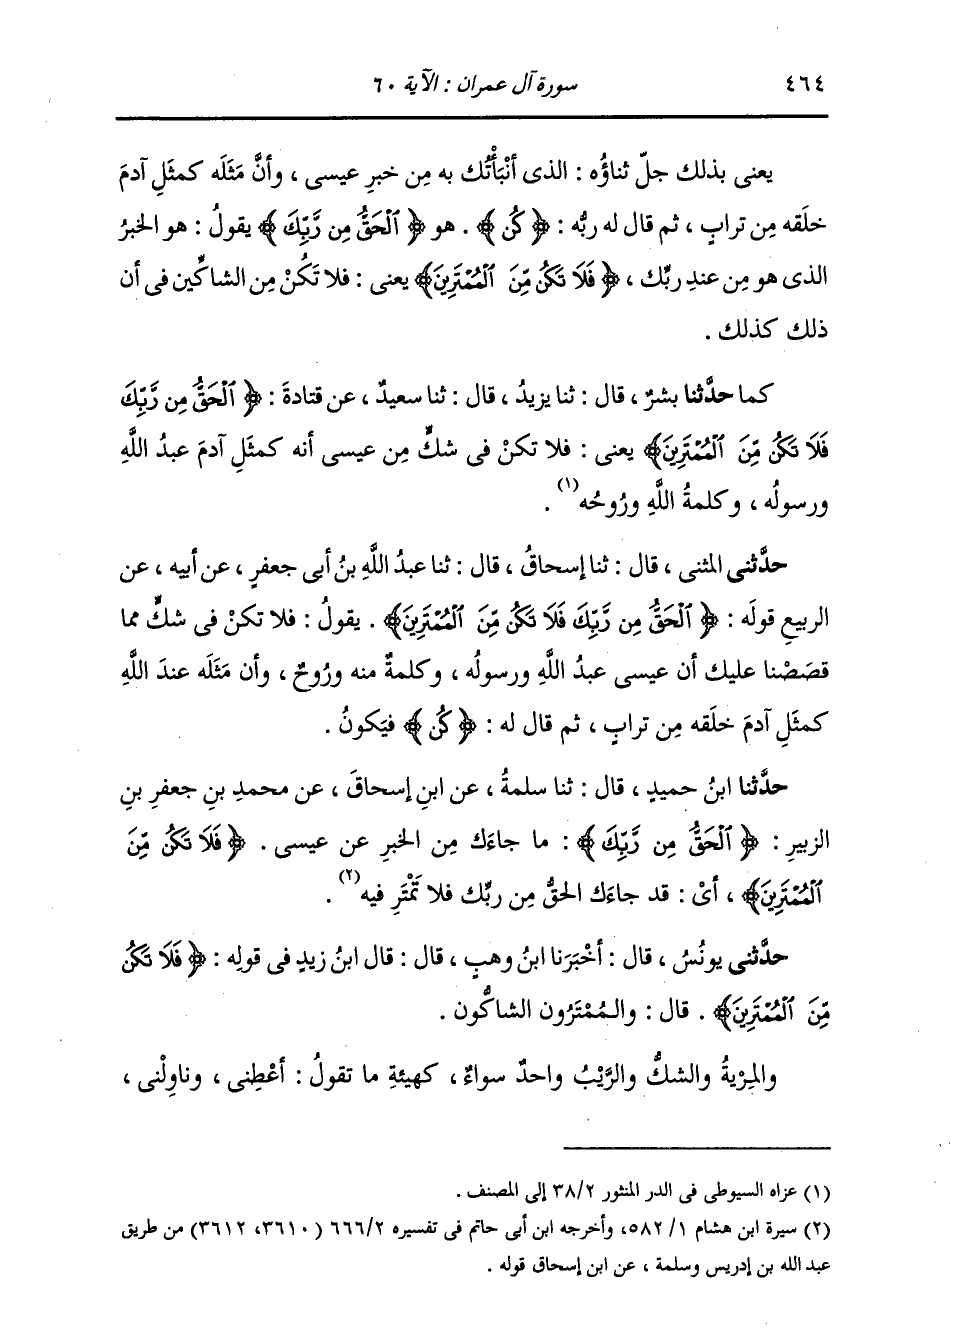 ٤٦٤ سورة آل عمران : الآية ٦٠
يعنى بذلك جلّ ثناؤُه : الذى أنْبَأْتُك به مِن خبرِ عيسى ، وأنَّ مَثَلَه كمثَلِ آدمَ
خلَقه مِن ترابٍ ، ثم قال له ربُّه : ﴿ كُن ﴾ . هو ﴿ ٱلْحَقُّ مِن رَّبِّكَ ﴾ يقولُ : هو الخبرُ
الذى هو مِن عندِ ربِّك ، ﴿ فَلَا تَكُن مِّنَ ٱلْمُمْتَرِينَ ﴾ يعنى : فلا تَكُنْ مِن الشاكِّين فى أن
ذلك كذلك .
كما حدَّثنا بشرٌ ، قال : ثنا يزيدُ ، قال : ثنا سعيدٌ ، عن قتادةَ : ﴿ ٱلْحَقُّ مِن رَّبِّكَ
فَلَا تَكُن مِّنَ ٱلْمُمْتَرِينَ ﴾ يعنى : فلا تكنْ فى شكٍّ مِن عيسى أنه كمثَلِ آدمَ عبدُ اللَّهِ
ورسولُه ، وكلمةُ اللَّهِ ورُوحُه(١) .
حدَّثنى المثنى ، قال : ثنا إسحاقُ ، قال : ثنا عبدُ اللَّهِ بنُ أبى جعفرٍ ، عن أبيه ، عن
الربيعِ قولَه : ﴿ ٱلْحَقُّ مِن رَّبِّكَ فَلَا تَكُن مِّنَ ٱلْمُمْتَرِينَ ﴾ . يقولُ : فلا تكنْ فى شكٍّ مما
قصَصْنا عليك أن عيسى عبدُ اللَّهِ ورسولُه ، وكلمةٌ منه ورُوحٌ ، وأن مَثَلَه عندَ اللَّهِ
كمثَلِ آدمَ خلَقه مِن ترابٍ ، ثم قال له : ﴿ كُن ﴾ فيَكونُ .
حدَّثنا ابنُ حميدٍ ، قال : ثنا سلمةُ ، عن ابنِ إسحاقَ ، عن محمدِ بنِ جعفرِ بنِ
الزبيرِ : ﴿ ٱلْحَقُّ مِن رَّبِّكَ ﴾ : ما جاءَك مِن الخبرِ عن عيسى . ﴿ فَلَا تَكُن مِّنَ
ٱلْمُمْتَرِينَ ﴾ ، أىْ : قد جاءَك الحقُّ مِن ربِّك فلا تَمْتَرِ فيه(٢) .
حدَّثنى يونُسُ ، قال : أخْبَرَنا ابنُ وهبٍ ، قال : قال ابنُ زيدٍ فى قولِه : ﴿ فَلَا تَكُن
مِّنَ ٱلْمُمْتَرِينَ ﴾ . قال : والمُمْتَرُون الشاكُّون .
والمِرْيةُ والشكُّ والرَّيْبُ واحدٌ سواءٌ ، كهيئةِ ما تقولُ : أعْطِنى ، وناوِلْنى ،
(١) عزاه السيوطى فى الدر المنثور ٣٨/٢ إلى المصنف .
(٢) سيرة ابن هشام ١/ ٥٨٢، وأخرجه ابن أبى حاتم فى تفسيره ٦٦٦/٢ (٣٦١٠، ٣٦١٢) من طريق
عبد الله بن إدريس وسلمة ، عن ابن إسحاق قوله .